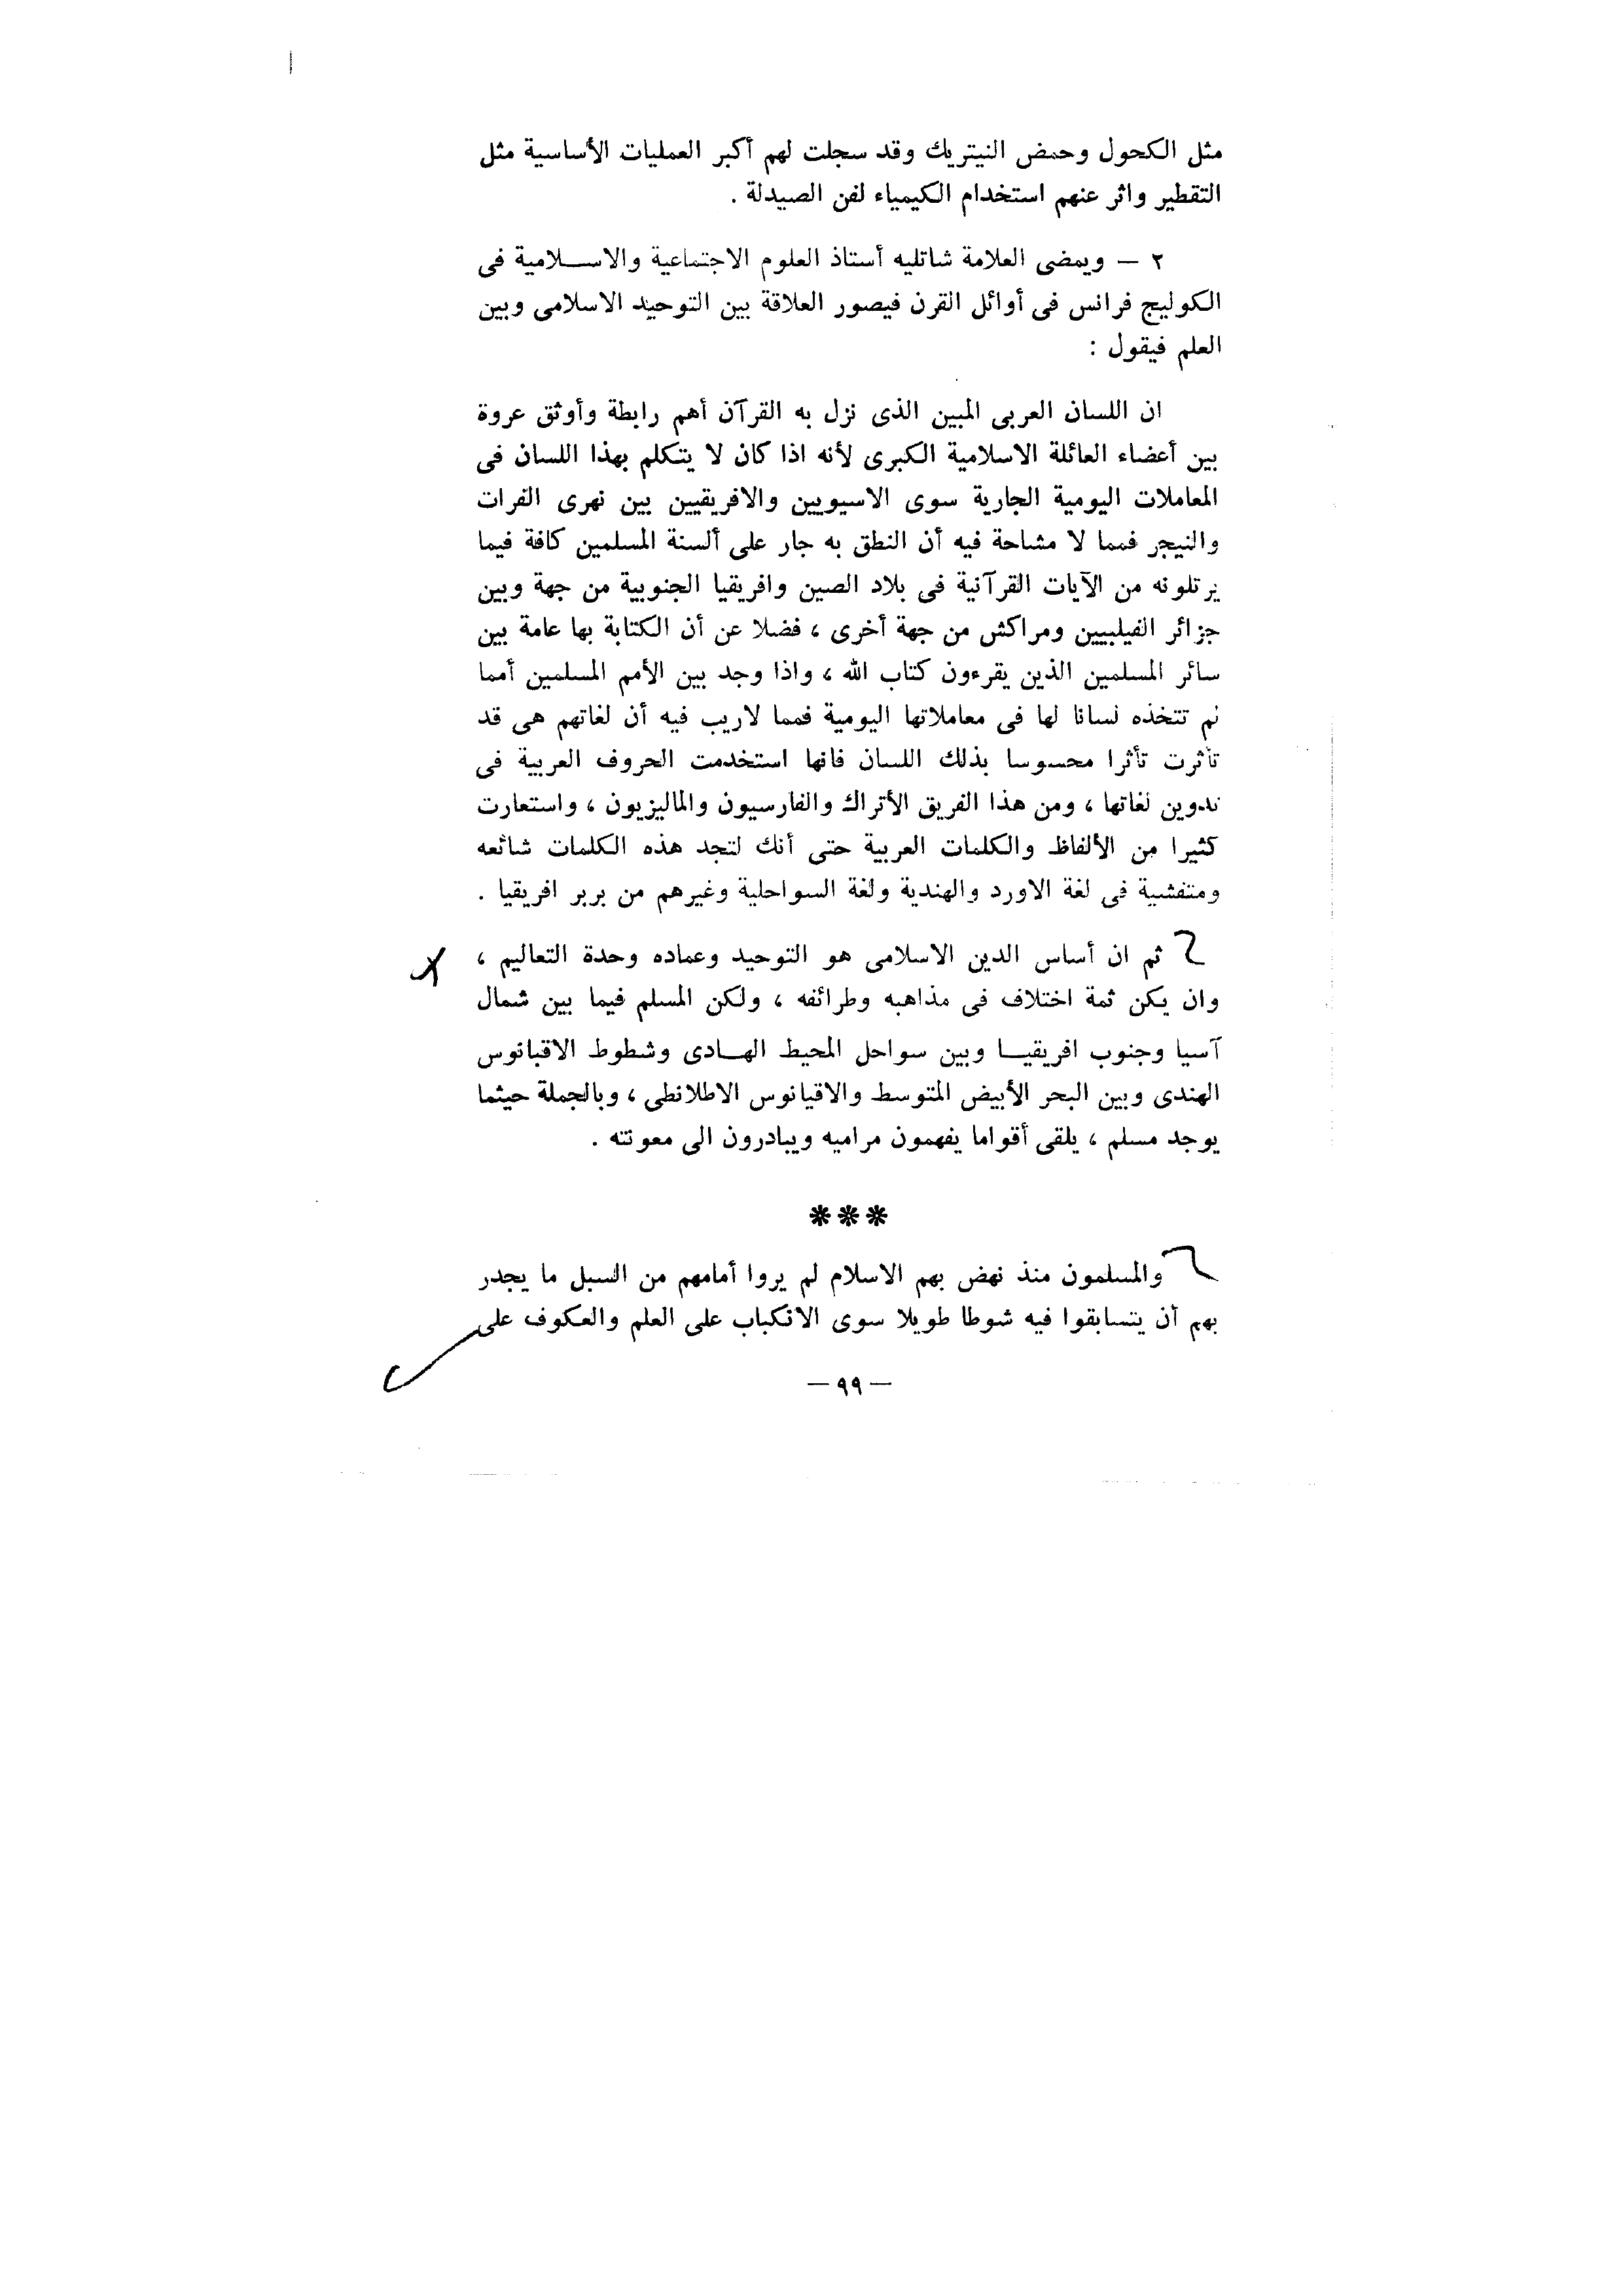 مثل الكحول وحمض النيتريك وقد سجلت لهم أكبر العمليات الأساسية مثل
التقطير واثر عنهم استخدام الكيمياء لفن الصيدلة .
٢ — ويمضى العلامة شاتليه أستاذ العلوم الاجتماعية والاسـلامية فى
الكوليج فرانس فى أوائل القرن فيصور العلاقة بين التوحيد الاسلامى وبين
العلم فيقول :
ان اللسان العربى المبين الذى نزل به القرآن أهم رابطة وأوثق عروة
بين أعضاء العائلة الاسلامية الكبرى لأنه اذا كان لا يتكلم بهذا اللسان فى
المعاملات اليومية الجارية سوى الاسيويين والافريقيين بين نهرى الفرات
والنيجر فمما لا مشاحة فيه أن النطق به جار على ألسنة المسلمين كافة فيما
يرتلونه من الآيات القرآنية فى بلاد الصين وافريقيا الجنوبية من جهة وبين
جزائر الفيلبيين ومراكش من جهة أخرى ، فضلا عن أن الكتابة بها عامة بين
سائر المسلمين الذين يقرءون كتاب الله ، واذا وجد بين الأمم المسلمين أمما
لم تتخذه لسانا لها فى معاملاتها اليومية فمما لاريب فيه أن لغاتهم هى قد
تأثرت تأثرا محسوسا بذلك اللسان فانها استخدمت الحروف العربية فى
تدوين لغاتها ، ومن هذا الفريق الأتراك والفارسيون والماليزيون ، واستعارت
كثيرا من الألفاظ والكلمات العربية حتى أنك لتجد هذه الكلمات شائعه
ومتفشية فى لغة الاورد والهندية ولغة السواحلية وغيرهم من بربر افريقيا .
ثم ان أساس الدين الاسلامى هو التوحيد وعماده وحدة التعاليم ،
وان يكن ثمة اختلاف فى مذاهبه وطرائفه ، ولكن المسلم فيما بين شمال
آسيا وجنوب افريقيـا وبين سواحل المحيط الهـادى وشطوط الاقيانوس
الهندى وبين البحر الأبيض المتوسط والاقيانوس الاطلانطى ، وبالجملة حيثما
يوجد مسلم ، يلقى أقواما يفهمون مراميه ويبادرون الى معونته .
***
والمسلمون منذ نهض بهم الاسلام لم يروا أمامهم من السبل ما يجدر
بهم أن يتسابقوا فيه شوطا طويلا سوى الانكباب على العلم والعكوف على
— ٩٩ —